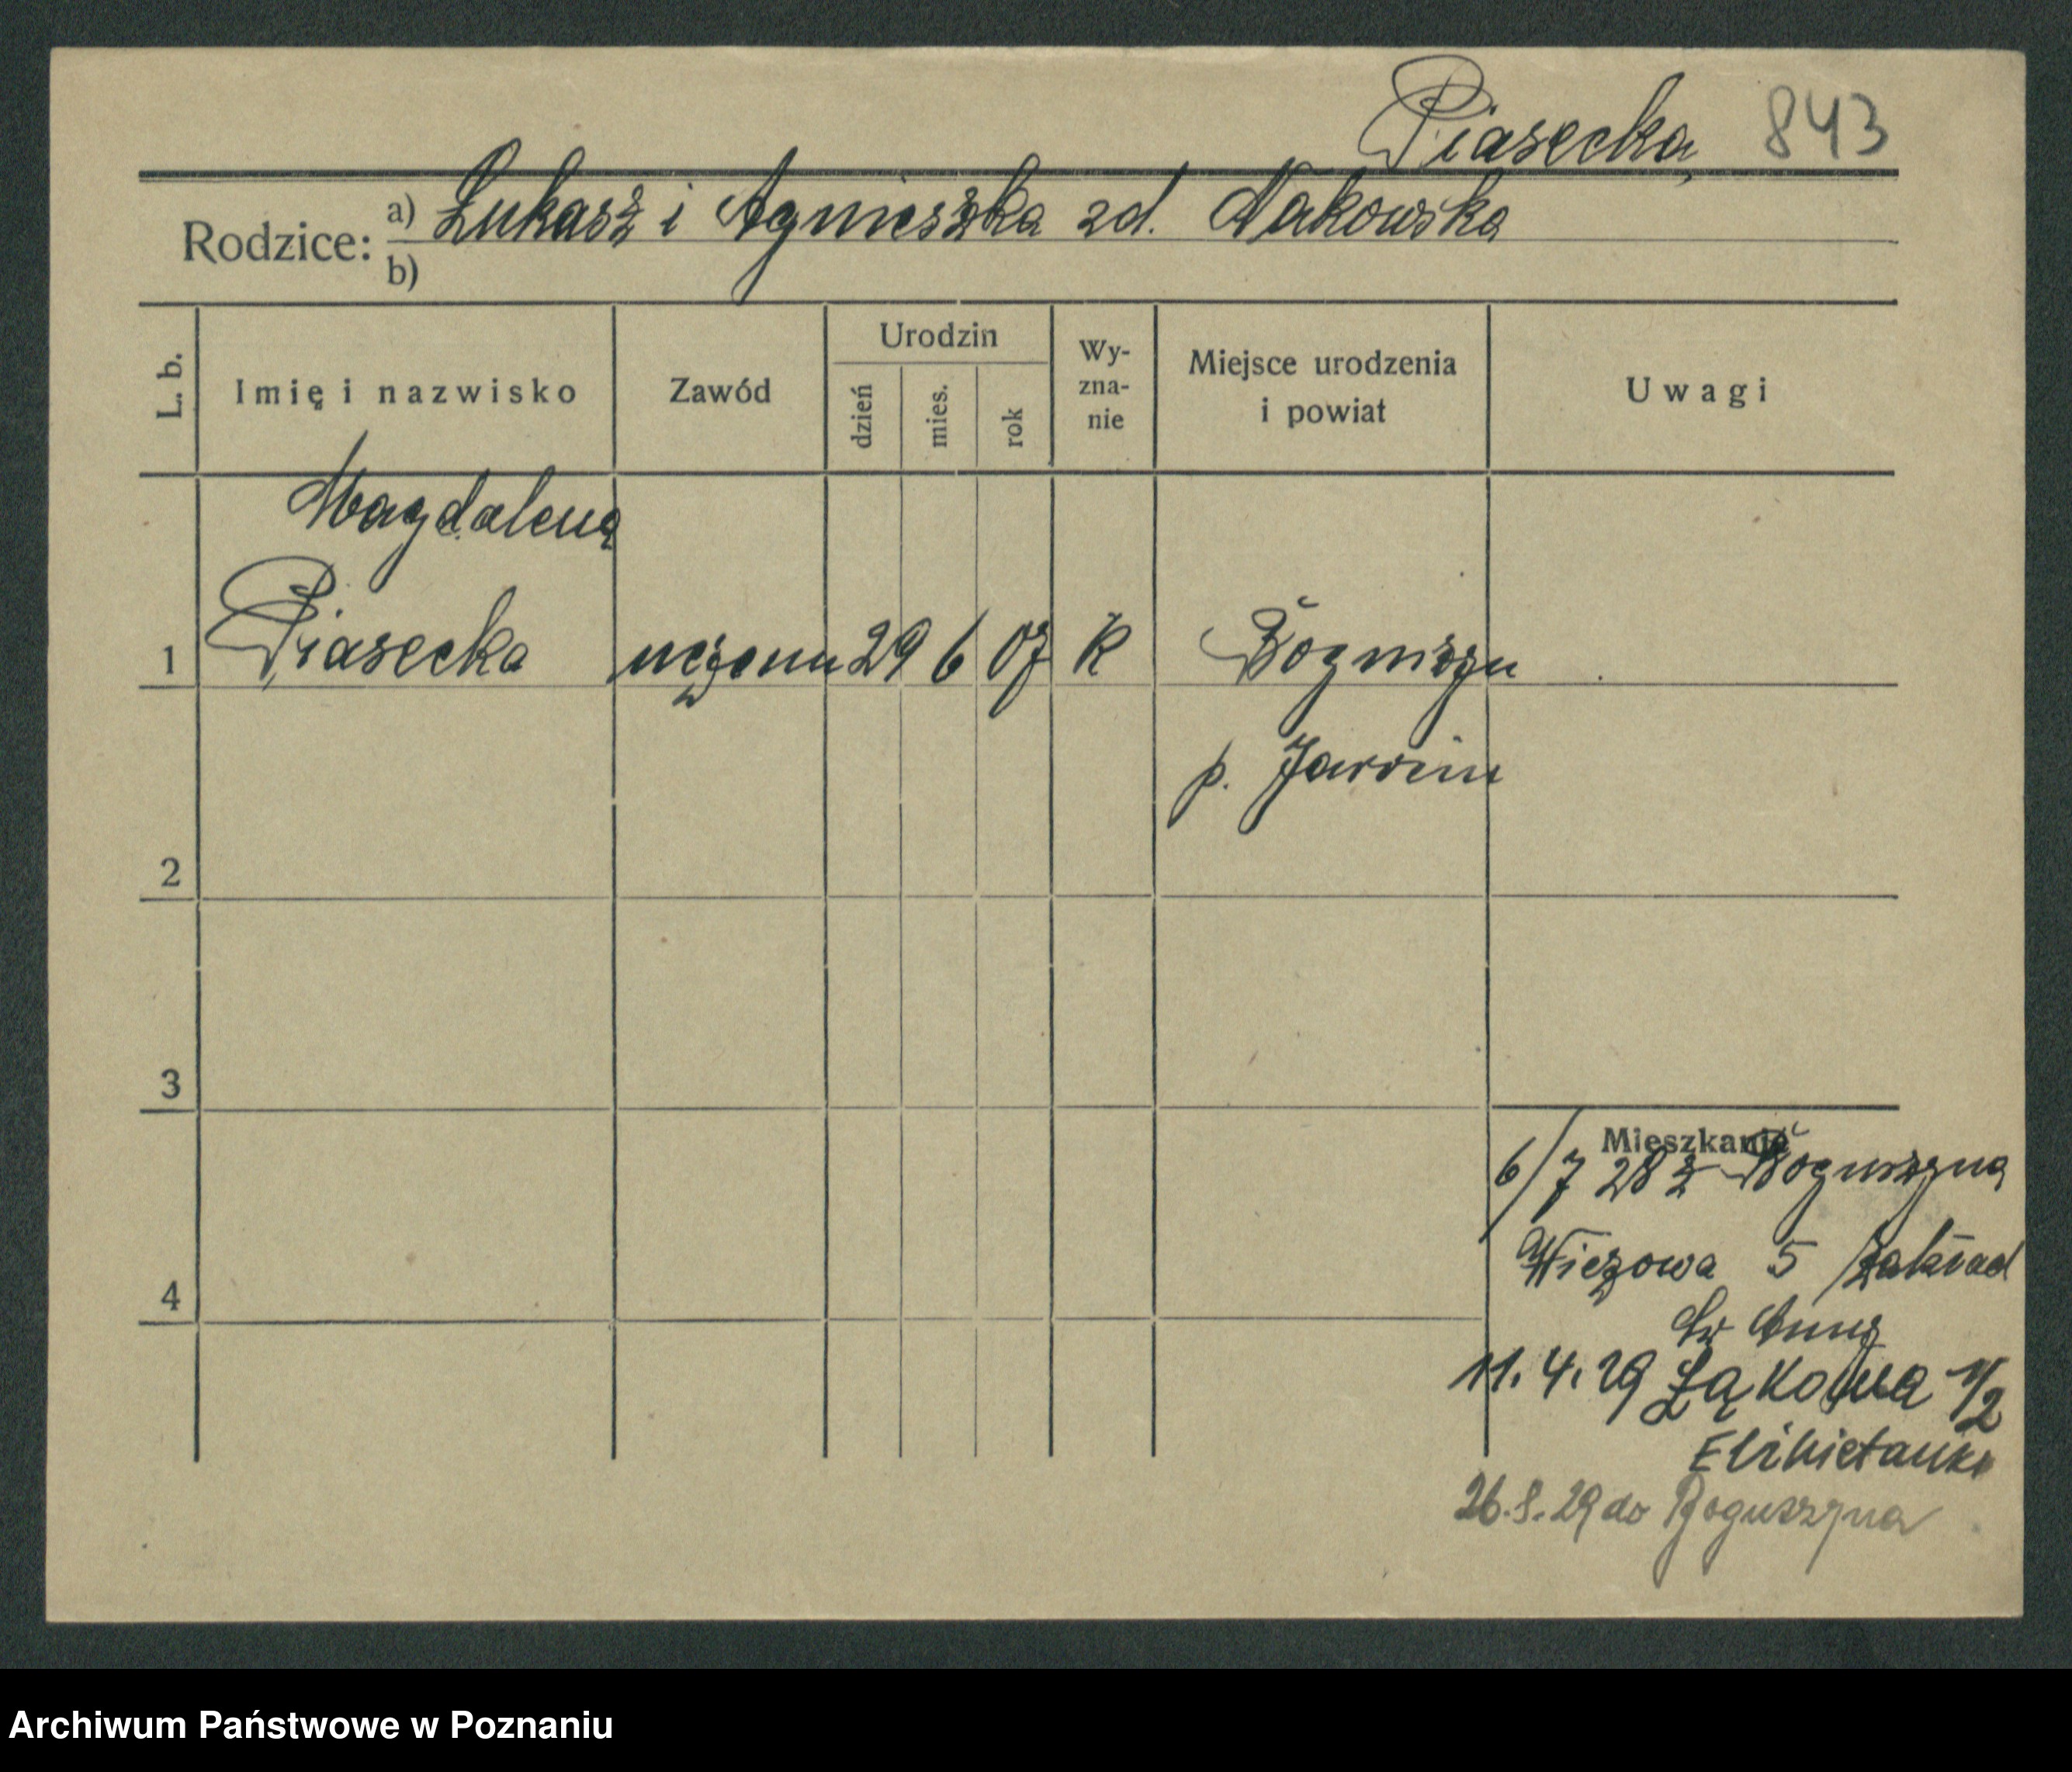 Piasecka 843
Rodzice: a) Łukasz i Agnieszka zd. Nakowska
b)
L. b. Imię i nazwisko Zawód Urodzin dzień mies. rok Wy-zna-nie Miejsce urodzenia i powiat Uwagi
Magdalena
1 Piasecka 29 6 07 k
p. Jarocin
2
3
Mieszkanie
6/7 28 z Boguszyna
4
Wieżowa 5 /zakład
św Anny
11.4.29 Łąkowa 1/2
Elżbietanki
26.8.29 do Boguszyna
Archiwum Państwowe w Poznaniu